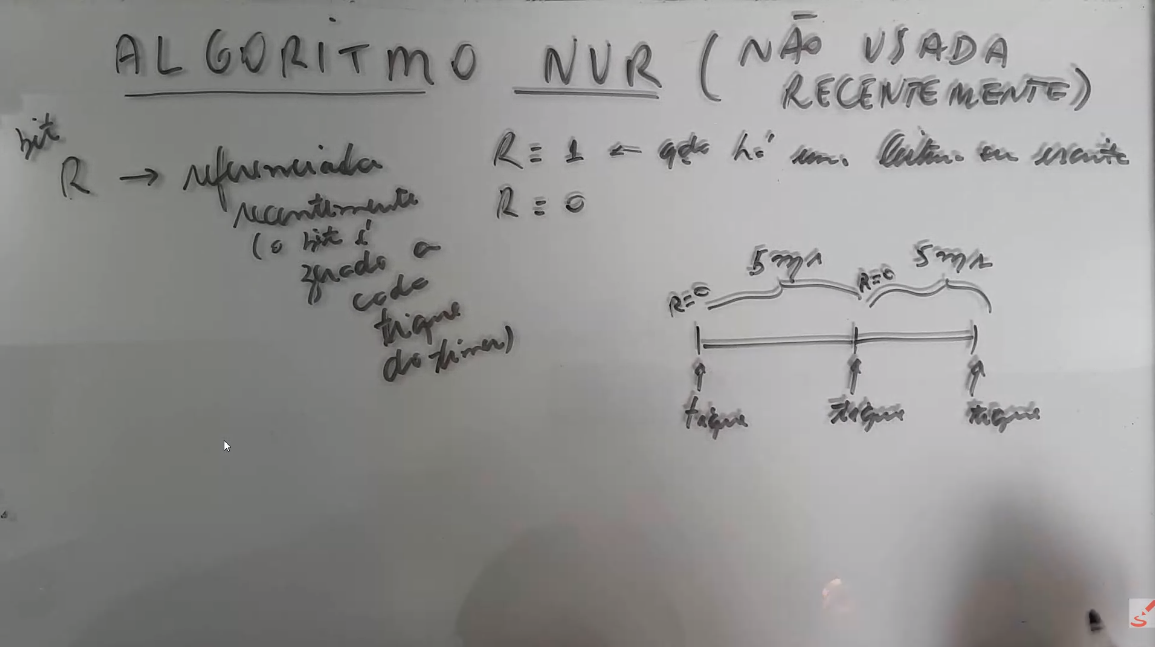 ALGORITMO NUR (NÃO USADA
RECENTEMENTE)
bit
R → referenciada
recentemente
(o bit é
zerado a
cada
tique
do timer)
R = 1 ← qdo há uma leitura ou escrita
R = 0
5ms 5ms
R=0 R=0
tique tique tique